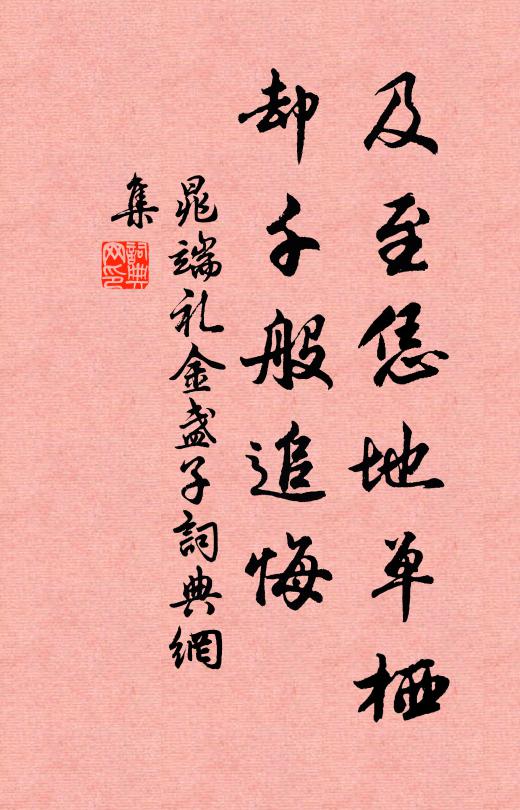 及至恁地单栖
却千般追悔
晁端礼金盏子詞典網
集
詞典
网印